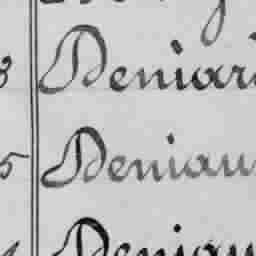 3 Deniar
5 Deniau
Deniau